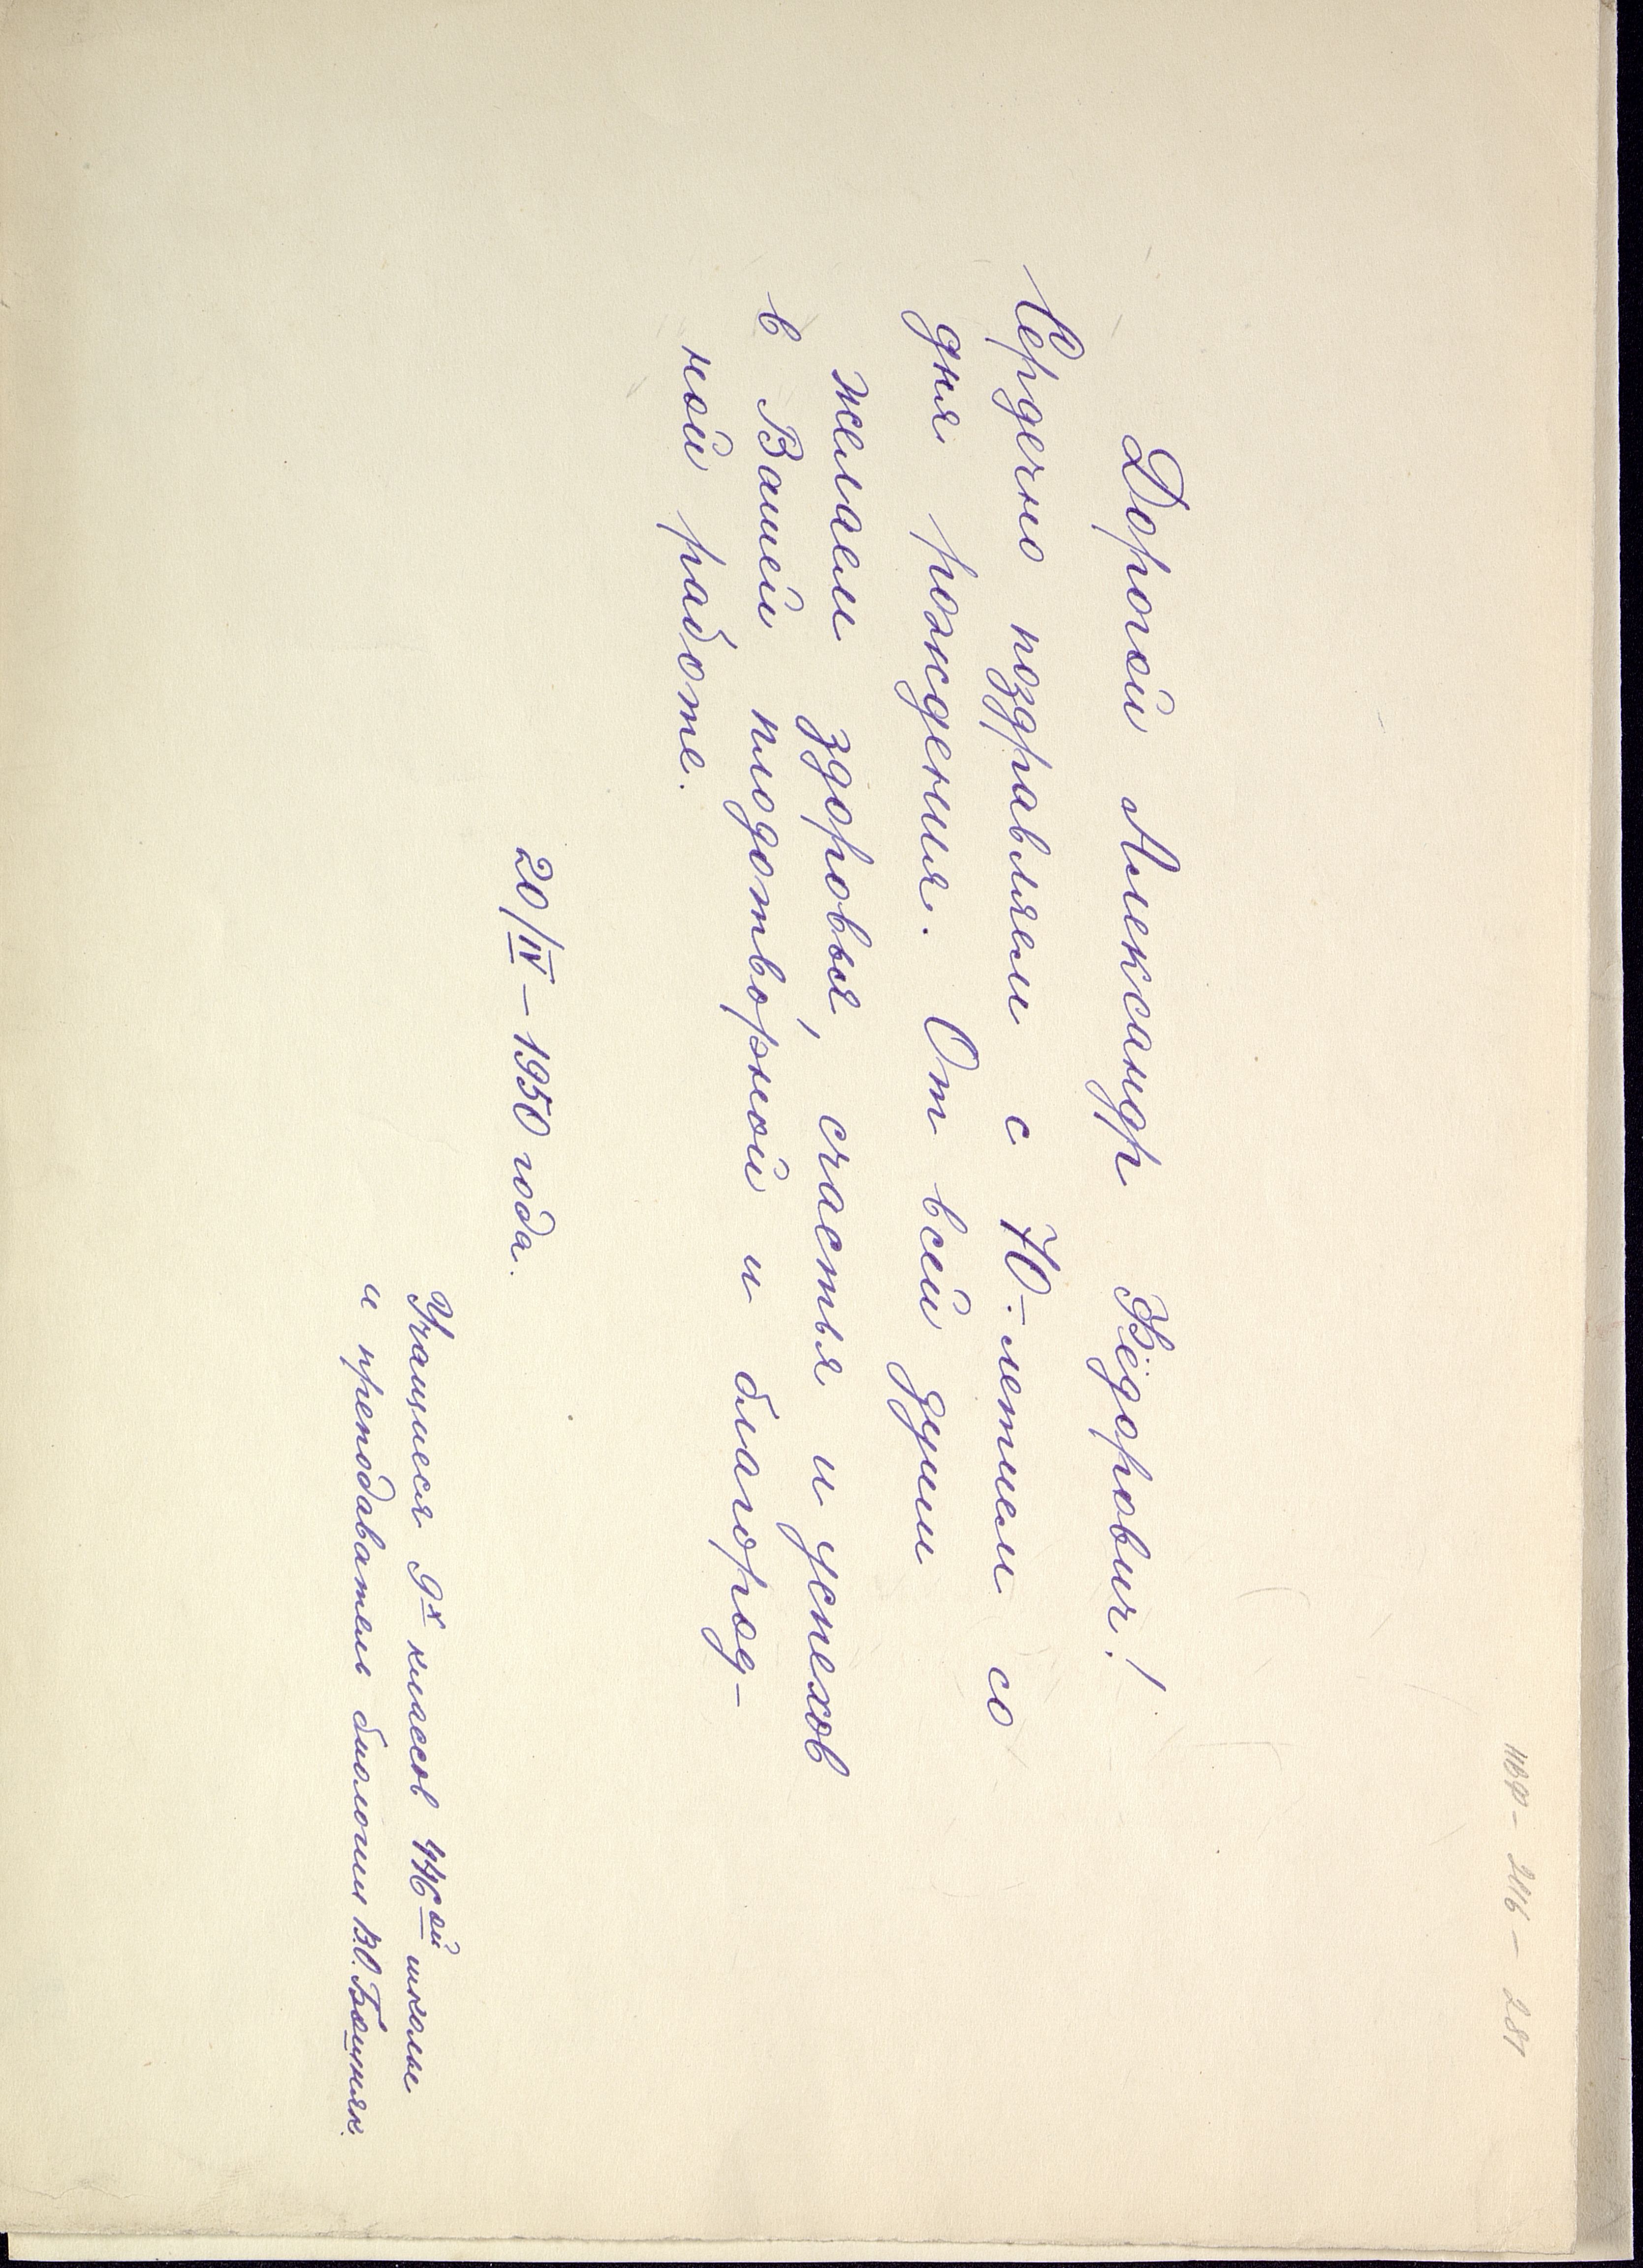 ТВФ - 246 - 281
Дорогой Александр Фёдорович!
Сердечно поздравляем с 70-летием со
дня рождения. От всей души
желаем здоровья, счастья и успехов
в Вашей плодотворной и благород-
ной работе.
20/IV – 1950 года.
Учащиеся 9х классов 446ой школы
и преподаватель биологии В.О.